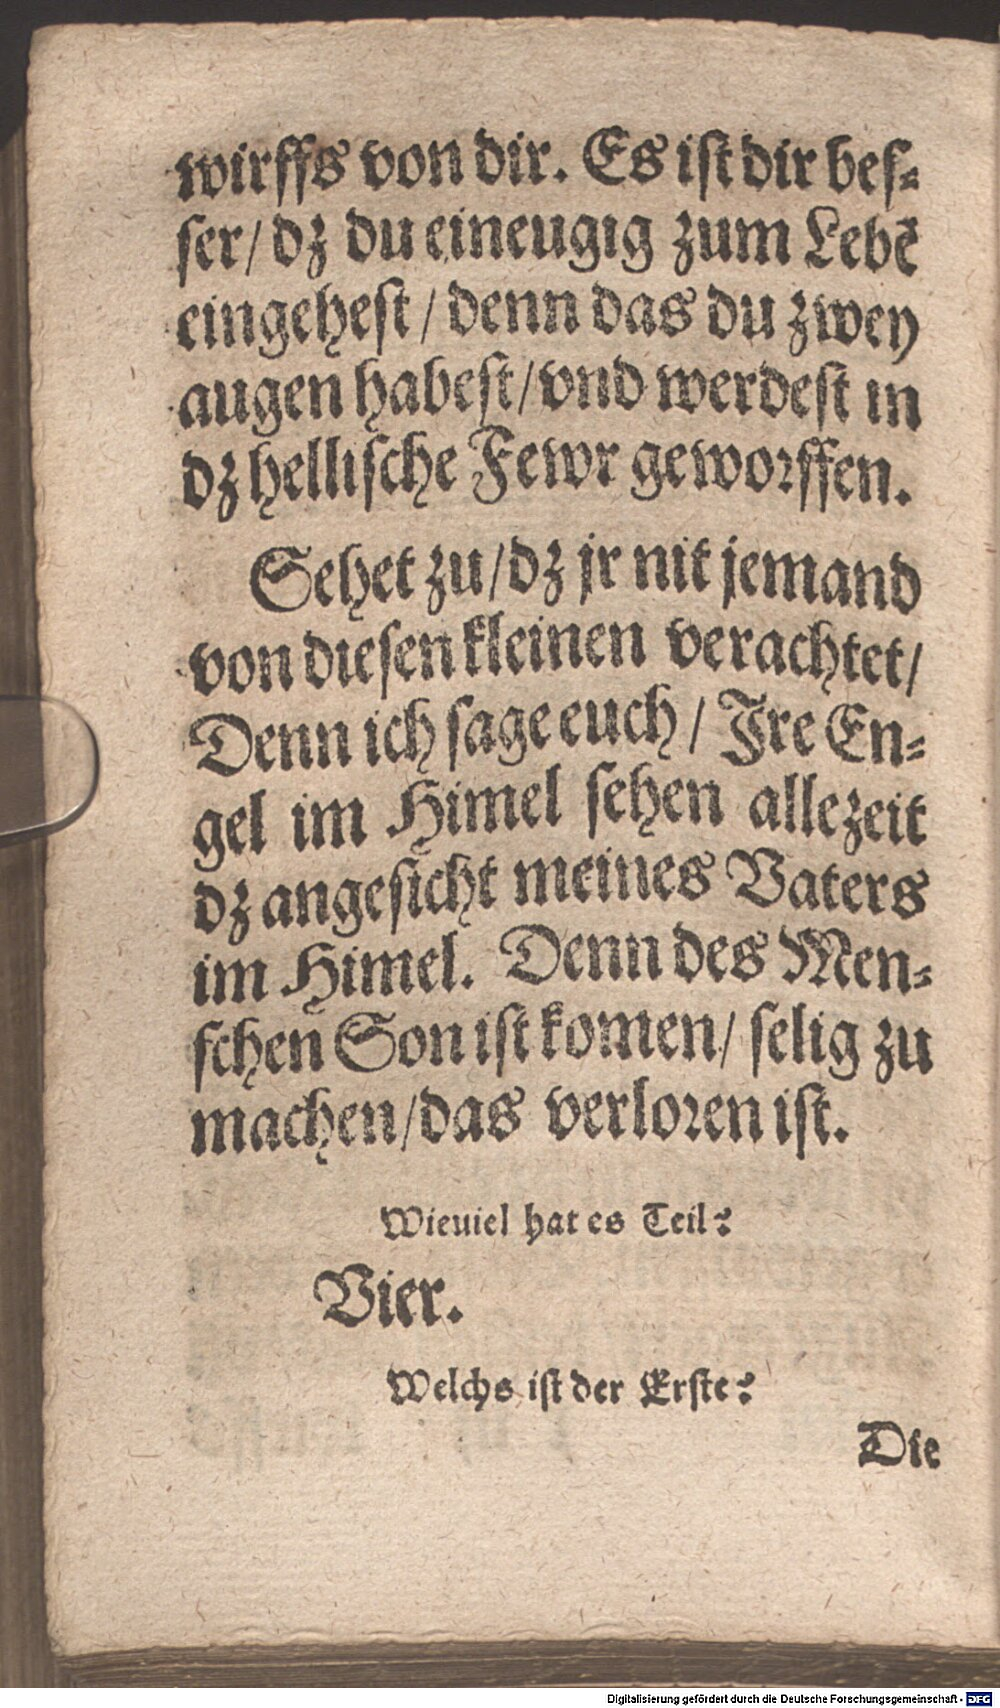 wirffs von dir. Es ist dir bes-
ser/ dz du eineugig zum Lebẽ
eingehest / denn das du zwey
augen habest/ vnd werdest in
dz hellische Fewr geworffen.
Sehet zu/ dz jr nit jemand
von diesen kleinen verachtet/
Denn ich sage euch / Jre En-
gel im Himel sehen allezeit
dz angesicht meines Vaters
im Himel. Denn des Men-
schen Son ist komen/ selig zu
machen/ das verloren ist.
Wieuiel hat es Teil?
Vier.
Welchs ist der Erste?
Die
Digitalisierung gefördert durch die Deutsche Forschungsgemeinschaft - DFG